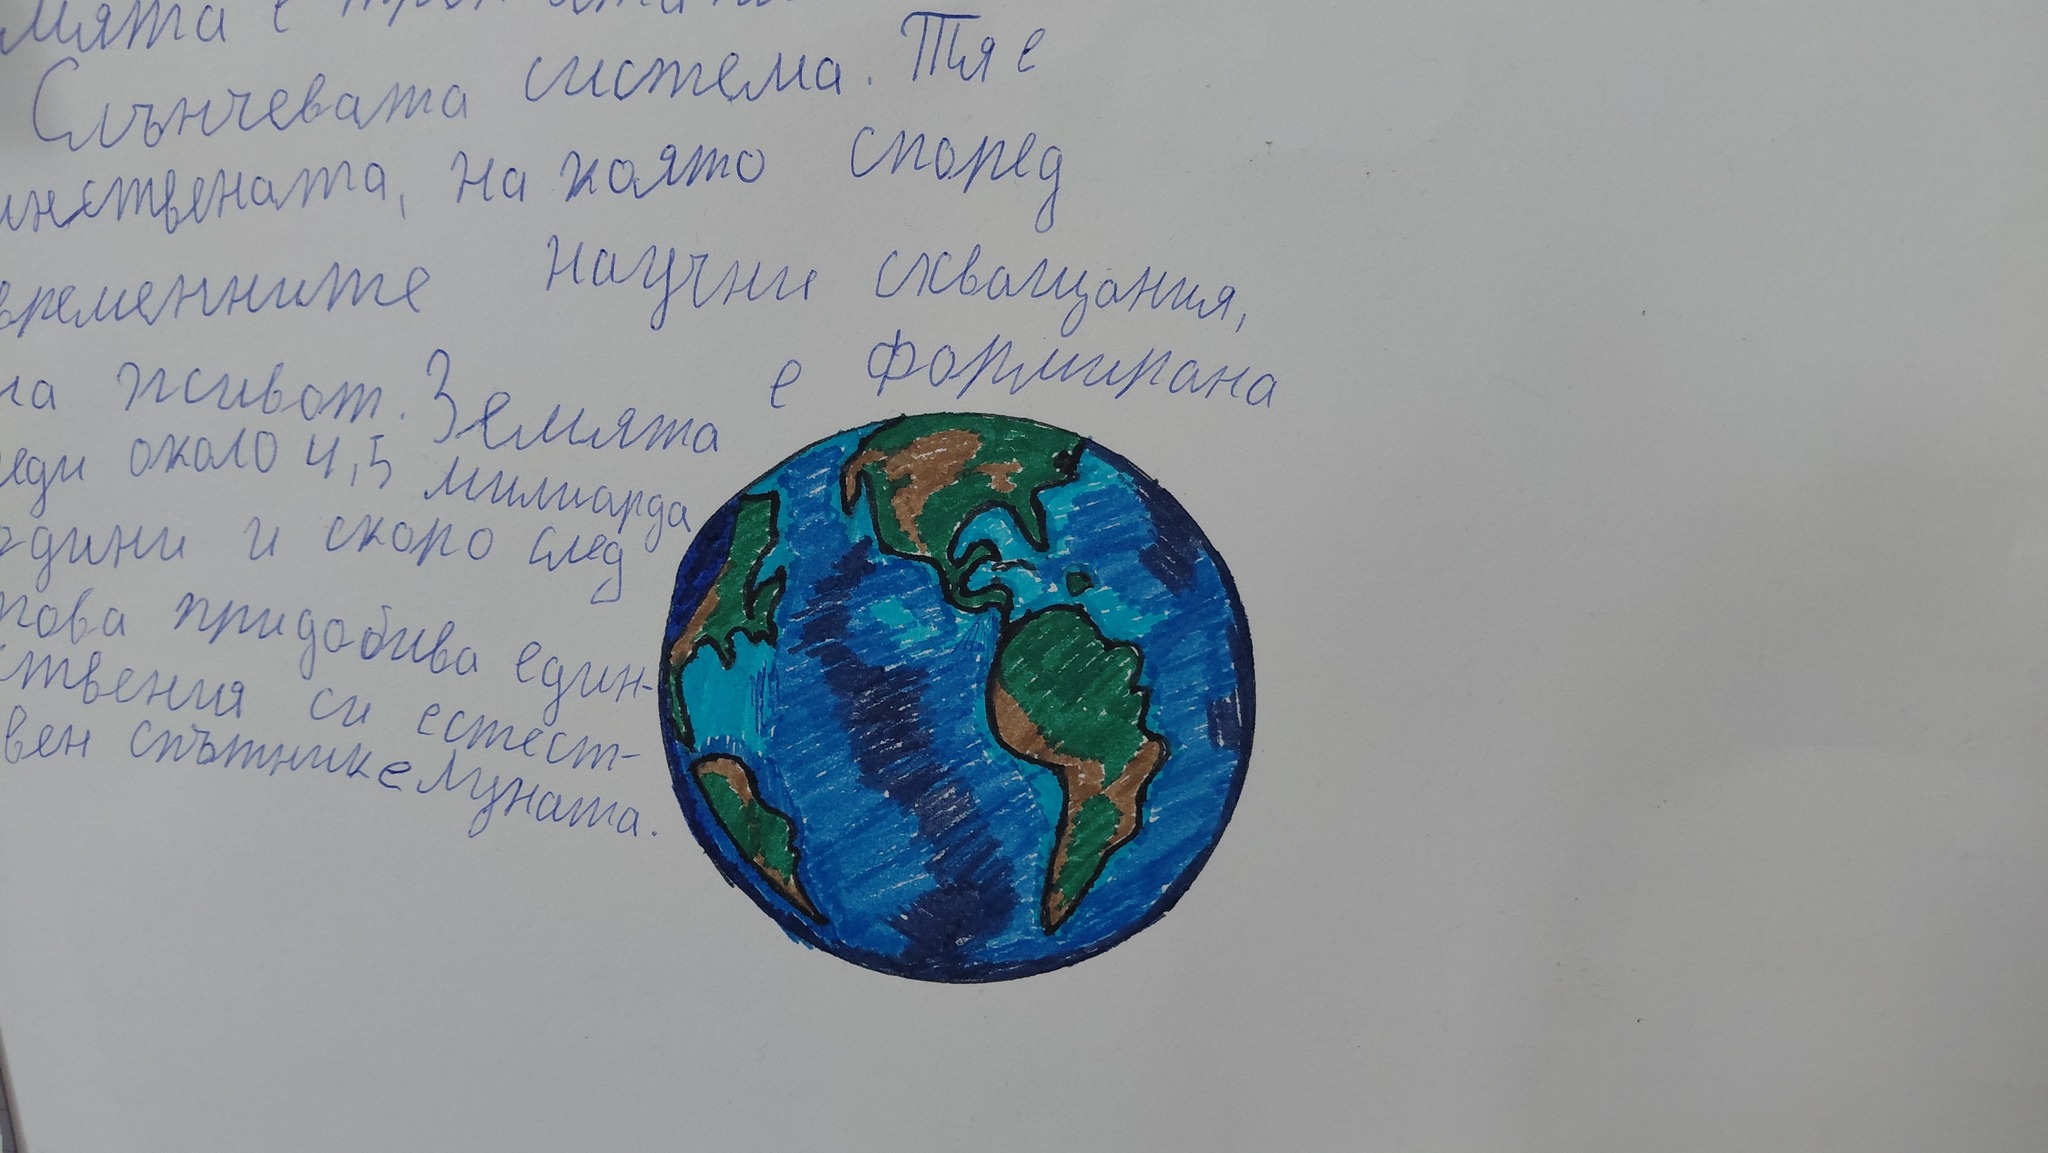 Слънчевата система. Тя е
инствената, на която според
временните научни схващания,
на живот. Земята е формирана
еди около 4,5 милиарда
одини и скоро след
това придобива един-
ствения си естест-
вен спътник е Луната.